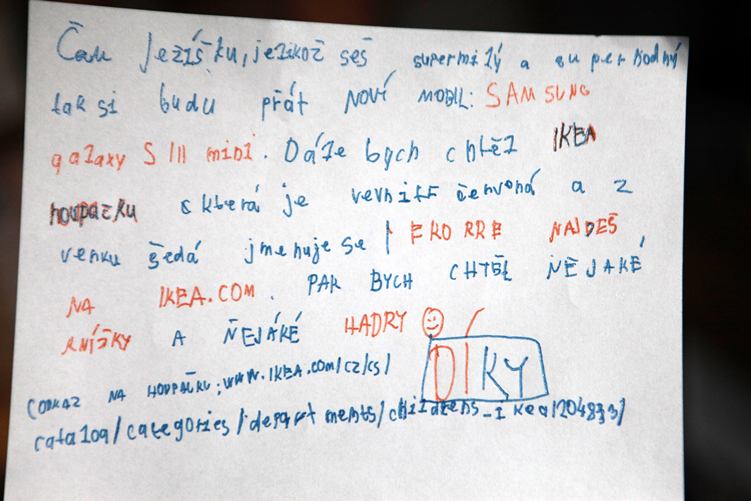 Čau Ježíšku, jelikož seš supermilý a superhodný
tak si budu přát NOVÍ MOBIL: SAMSUNG
galaxy S III mini. Dále bych chtěl IKEA
houpačku která je vevnitř červená a z
venku šedá jmenuje se EKORRE NAJDEŠ
NA IKEA.COM. PAK BYCH CHTĚL NĚJAKÉ
KNÍŽKY A ŇEJÁKÉ HADRY
DÍKY
(ODKAZ NA HOUPAČKU: WWW.IKEA.com/cz/cs/
catalog/categories/departments/childrens_ikea/20483/